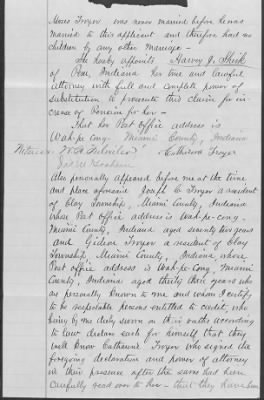 Moses Troyer was never married before he was
married to this applicant and therefore had no
children by any other Marriage -
She hereby appoints Harvey J. Shirk
of Peru, Indiana her true and lawful
attorney with full and complete power of
substitution to prosecute this claim for in-
crease of Pension for her -
That her Post Office address is
Wah-pe-cong. Miami County, Indiana
Witness Catherine Troyer
Also personally appeared before me at the time
and place aforesaid Joseph C. Troyer a resident
of Clay Township, Miami County, Indiana
whose Post office address is Wah-pe-cong.
Miami County, Indiana aged seventy two years
and Gideon Troyer a resident of Clay
Township Miami County, Indiana, whose
Post office address is Wah-pe-Cong, Miami
County, Indiana aged thirty three years who
are personally known to me and whom I certify
to be respectable persons entitled to credit, who
being by me duly sworn on their oaths according
to law declare each for himself that they
well know Catharine Troyer who signed the
foregoing declaration and power of attorney
in their presence after the same had been
carefully read over to her - that they have been